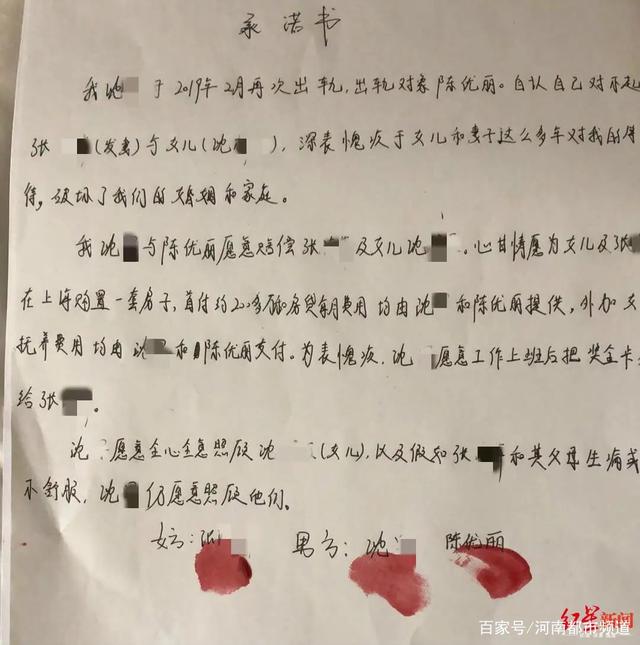 承诺书
我沈 于2019年2月再次出轨,出轨对象陈优丽。自认自己对不起
张 (发妻)与女儿(沈 ),深表愧疚于女儿和妻子这么多年对我的
待,破坏了我们的婚姻和家庭。
我沈 与陈优丽愿意赔偿张 及女儿沈 。心甘情愿为女儿及张
在上海购置一套房子,首付约200多万和房贷每月费用均由沈 和陈优丽提供,外加女
抚养费用均由沈 和陈优丽交付。为表愧疚,沈 愿意工作上班后把奖金卡
给张 。
沈 愿意全心全意照顾沈 (女儿),以及假如张 和其父母生病或
不舒服,沈 仍愿意照顾他们。
女方:张 男方:沈 陈优丽
红星新闻
百家号/河南都市频道